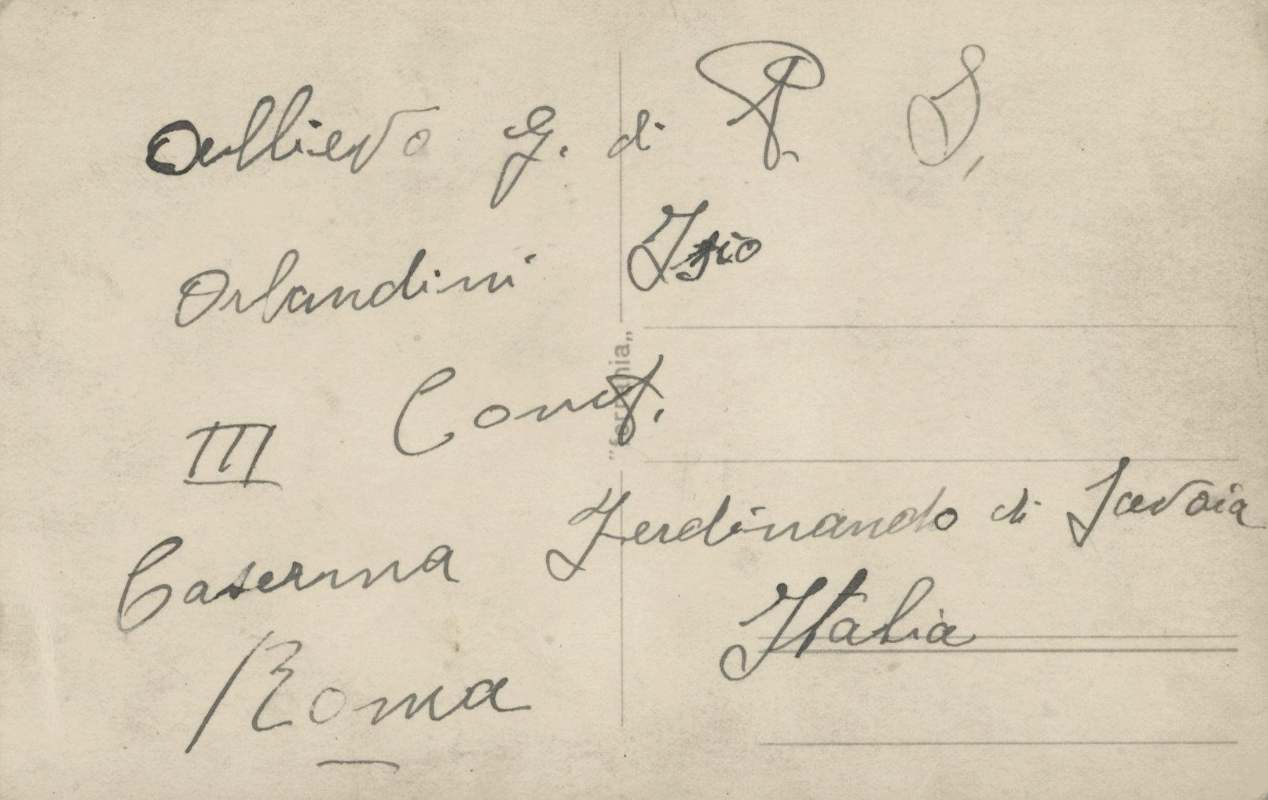 Allievo G. di P. S.
Orlandini Isio
III Comp.
"ferrania"
Caserma Ferdinando di Savoia
Italia
Roma